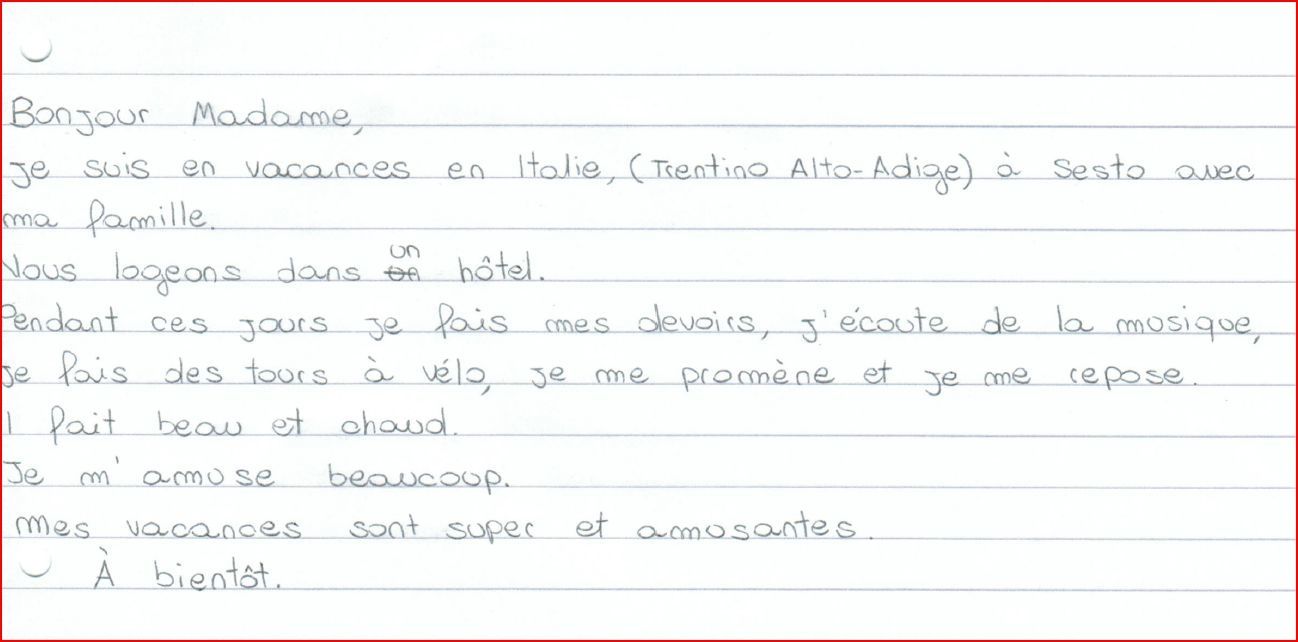 Bonjour Madame,
je suis en vacances en Italie, (Trentino Alto-Adige) à Sesto avec
ma famille.
Nous logeons dans un hôtel.
Pendant ces jours je fais mes devoirs, j'écoute de la musique,
je fais des tours à vélo, je me promène et je me repose.
Il fait beau et chaud.
Je m'amuse beaucoup.
Mes vacances sont super et amusantes.
À bientôt.